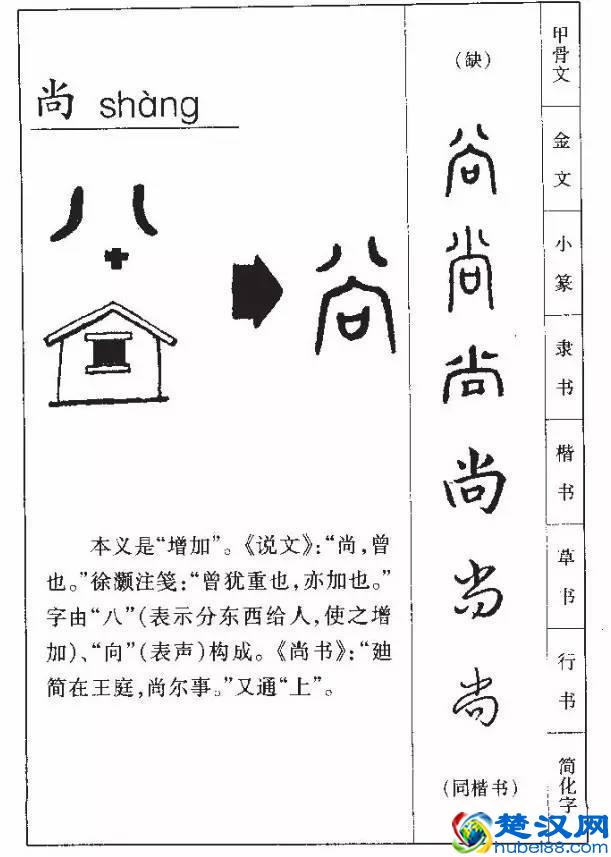 尚 shàng
八
尚
本义是“增加”。《说文》：“尚，曾
也。”徐灏注笺：“曾犹重也，亦加也。”
字由“八”（表示分东西给人，使之增
加）、“向”（表声）构成。《尚书》：“迪
简在王庭，尚尔事。”又通“上”。
（缺） 甲骨文
尚 金文
尚 小篆
尚 隶书
尚 楷书
尚 草书
尚 行书
（同楷书） 简化字
楚汉网
hubei88.com